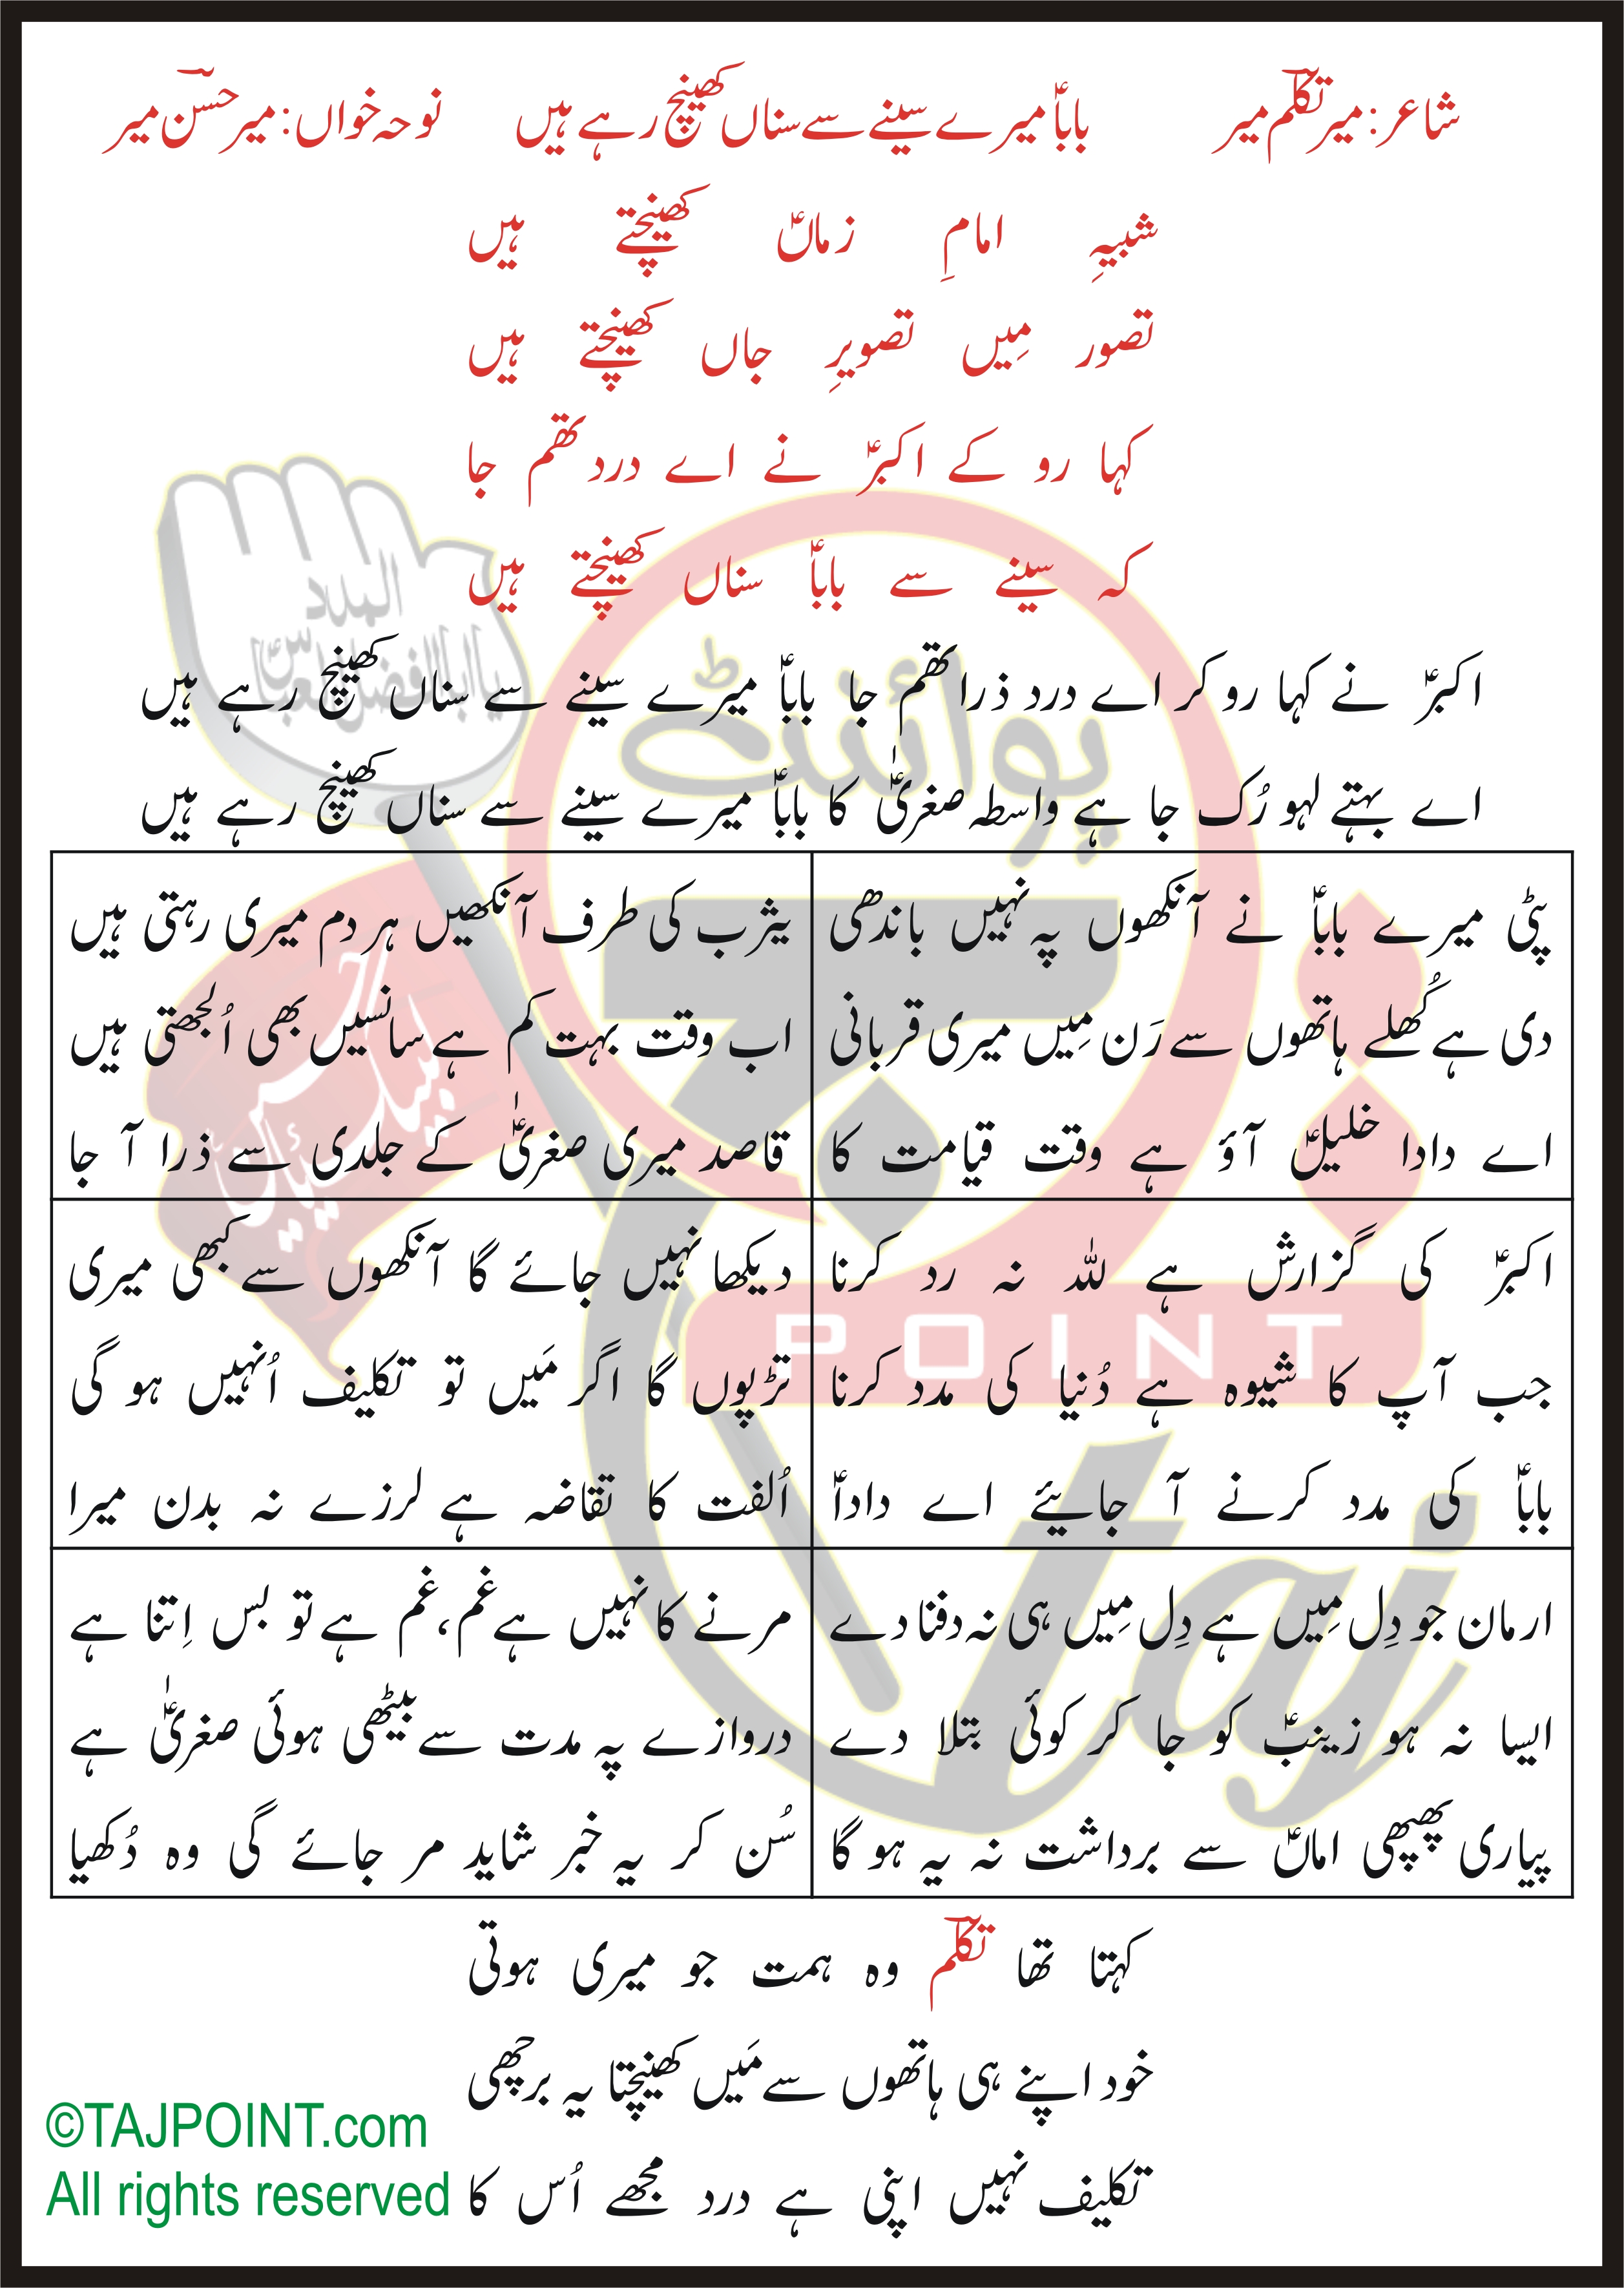 شاعر: میر تکلّم میر باباؑ میرے سینے سے سناں کھینچ رہے ہیں نوحہ خواں: میر حسن میر
شبیہِ امامِ زماںؑ کھینچتے ہیں
تصور مِیں تصویرِ جاں کھینچتے ہیں
کہا رو کے اکبرؑ نے اے درد تھم جا
کہ سینے سے باباؑ سناں کھینچتے ہیں
اکبرؑ نے کہا رو کر اے درد ذرا تھم جا باباؑ میرے سینے سے سناں کھینچ رہے ہیں
اے بہتے لہو رُک جا ہے واسطہ صغریٰؑ کا باباؑ میرے سینے سے سناں کھینچ رہے ہیں
پٹی میرے باباؑ نے آنکھوں پہ نہیں باندھی
دی ہے کُھلے ہاتھوں سے رَن مِیں میری قربانی
اے دادا خلیلؑ آؤ ہے وقت قیامت کا
یثرب کی طرف آنکھیں ہر دم میری رہتی ہیں
اب وقت بہت کم ہے سانسیں بھی اُلجھتی ہیں
قاصد میری صغریٰؑ کے جلدی سے ذرا آ جا
اکبرؑ کی گزارش ہے للہ نہ رد کرنا
جب آپ کا شیوہ ہے دُنیا کی مدد کرنا
باباؑ کی مدد کرنے آ جایئے اے داداؑ
دیکھا نہیں جائے گا آنکھوں سے کبھی میری
تڑپوں گا اگر مَیں تو تکلیف اُنہیں ہو گی
اُلفت کا تقاضہ ہے لرزے نہ بدن میرا
ارمان جو دِل مِیں ہے دِل مِیں ہی نہ دفنا دے
ایسا نہ ہو زینبؑ کو جا کر کوئی بتلا دے
پیاری پھپھی اماںؑ سے برداشت نہ یہ ہو گا
مرنے کا نہیں ہے غم، غم ہے تو بس اِتنا ہے
دروازے پہ مدت سے بیٹھی ہوئی صغریٰؑ ہے
سُن کر یہ خبر شاید مر جائے گی وہ دُکھیا
کہتا تھا تکلّم وہ ہمت جو میری ہوتی
خود اپنے ہی ہاتھوں سے مَیں کھینچتا یہ برچھی
تکلیف نہیں اپنی ہے درد مجھے اُس کا
©TAJPOINT.com
All rights reserved
المدد
یا ابالفضل العباسؑ
پوائنٹ
POINT
taj